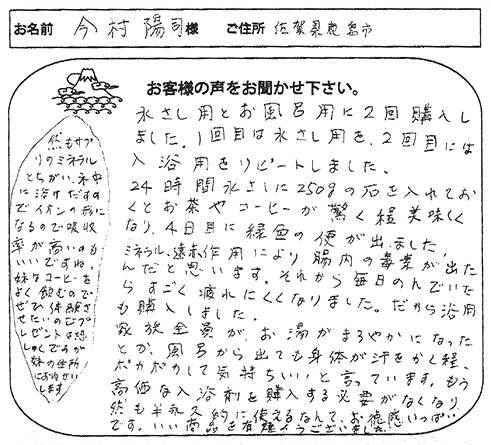 お名前 今村陽司様 ご住所 佐賀県鹿島市
お客様の声をお聞かせ下さい。
水さし用とお風呂用に2回購入し
ました。1回目は水さし用を、2回目には
入浴用をリピートしました。
24時間水さしに250gの石を入れてお
くとお茶やコーヒーが驚く程美味しく
なり、4日目に緑色の便が出ました。
ミネラル、遠赤作用により腸内の毒素が出た
んだと思います。それから毎日のんでいた
らすごく疲れにくくなりました。だから浴用
も購入しました。
家族全員が、お湯がまろやかになった
とか、風呂から出ても身体が汗をかく程、
ポカポカして気持ちいいと言っています。もう
高価な入浴剤を購入する必要がなくなり
然も半永久的に使えるなんて、お徳感いっぱい
です。いい商品を有難うございました。
然もサプ
リのミネラル
とちがい、水中
に溶けだすの
でイオンの形に
なるので吸収
率が高いのも
いいですね。
妹はコーヒーを
よく飲むので
ぜひ体験さ
せたいのでプ
レゼントは恐
しゅくですが
妹の住所
にお願い
します